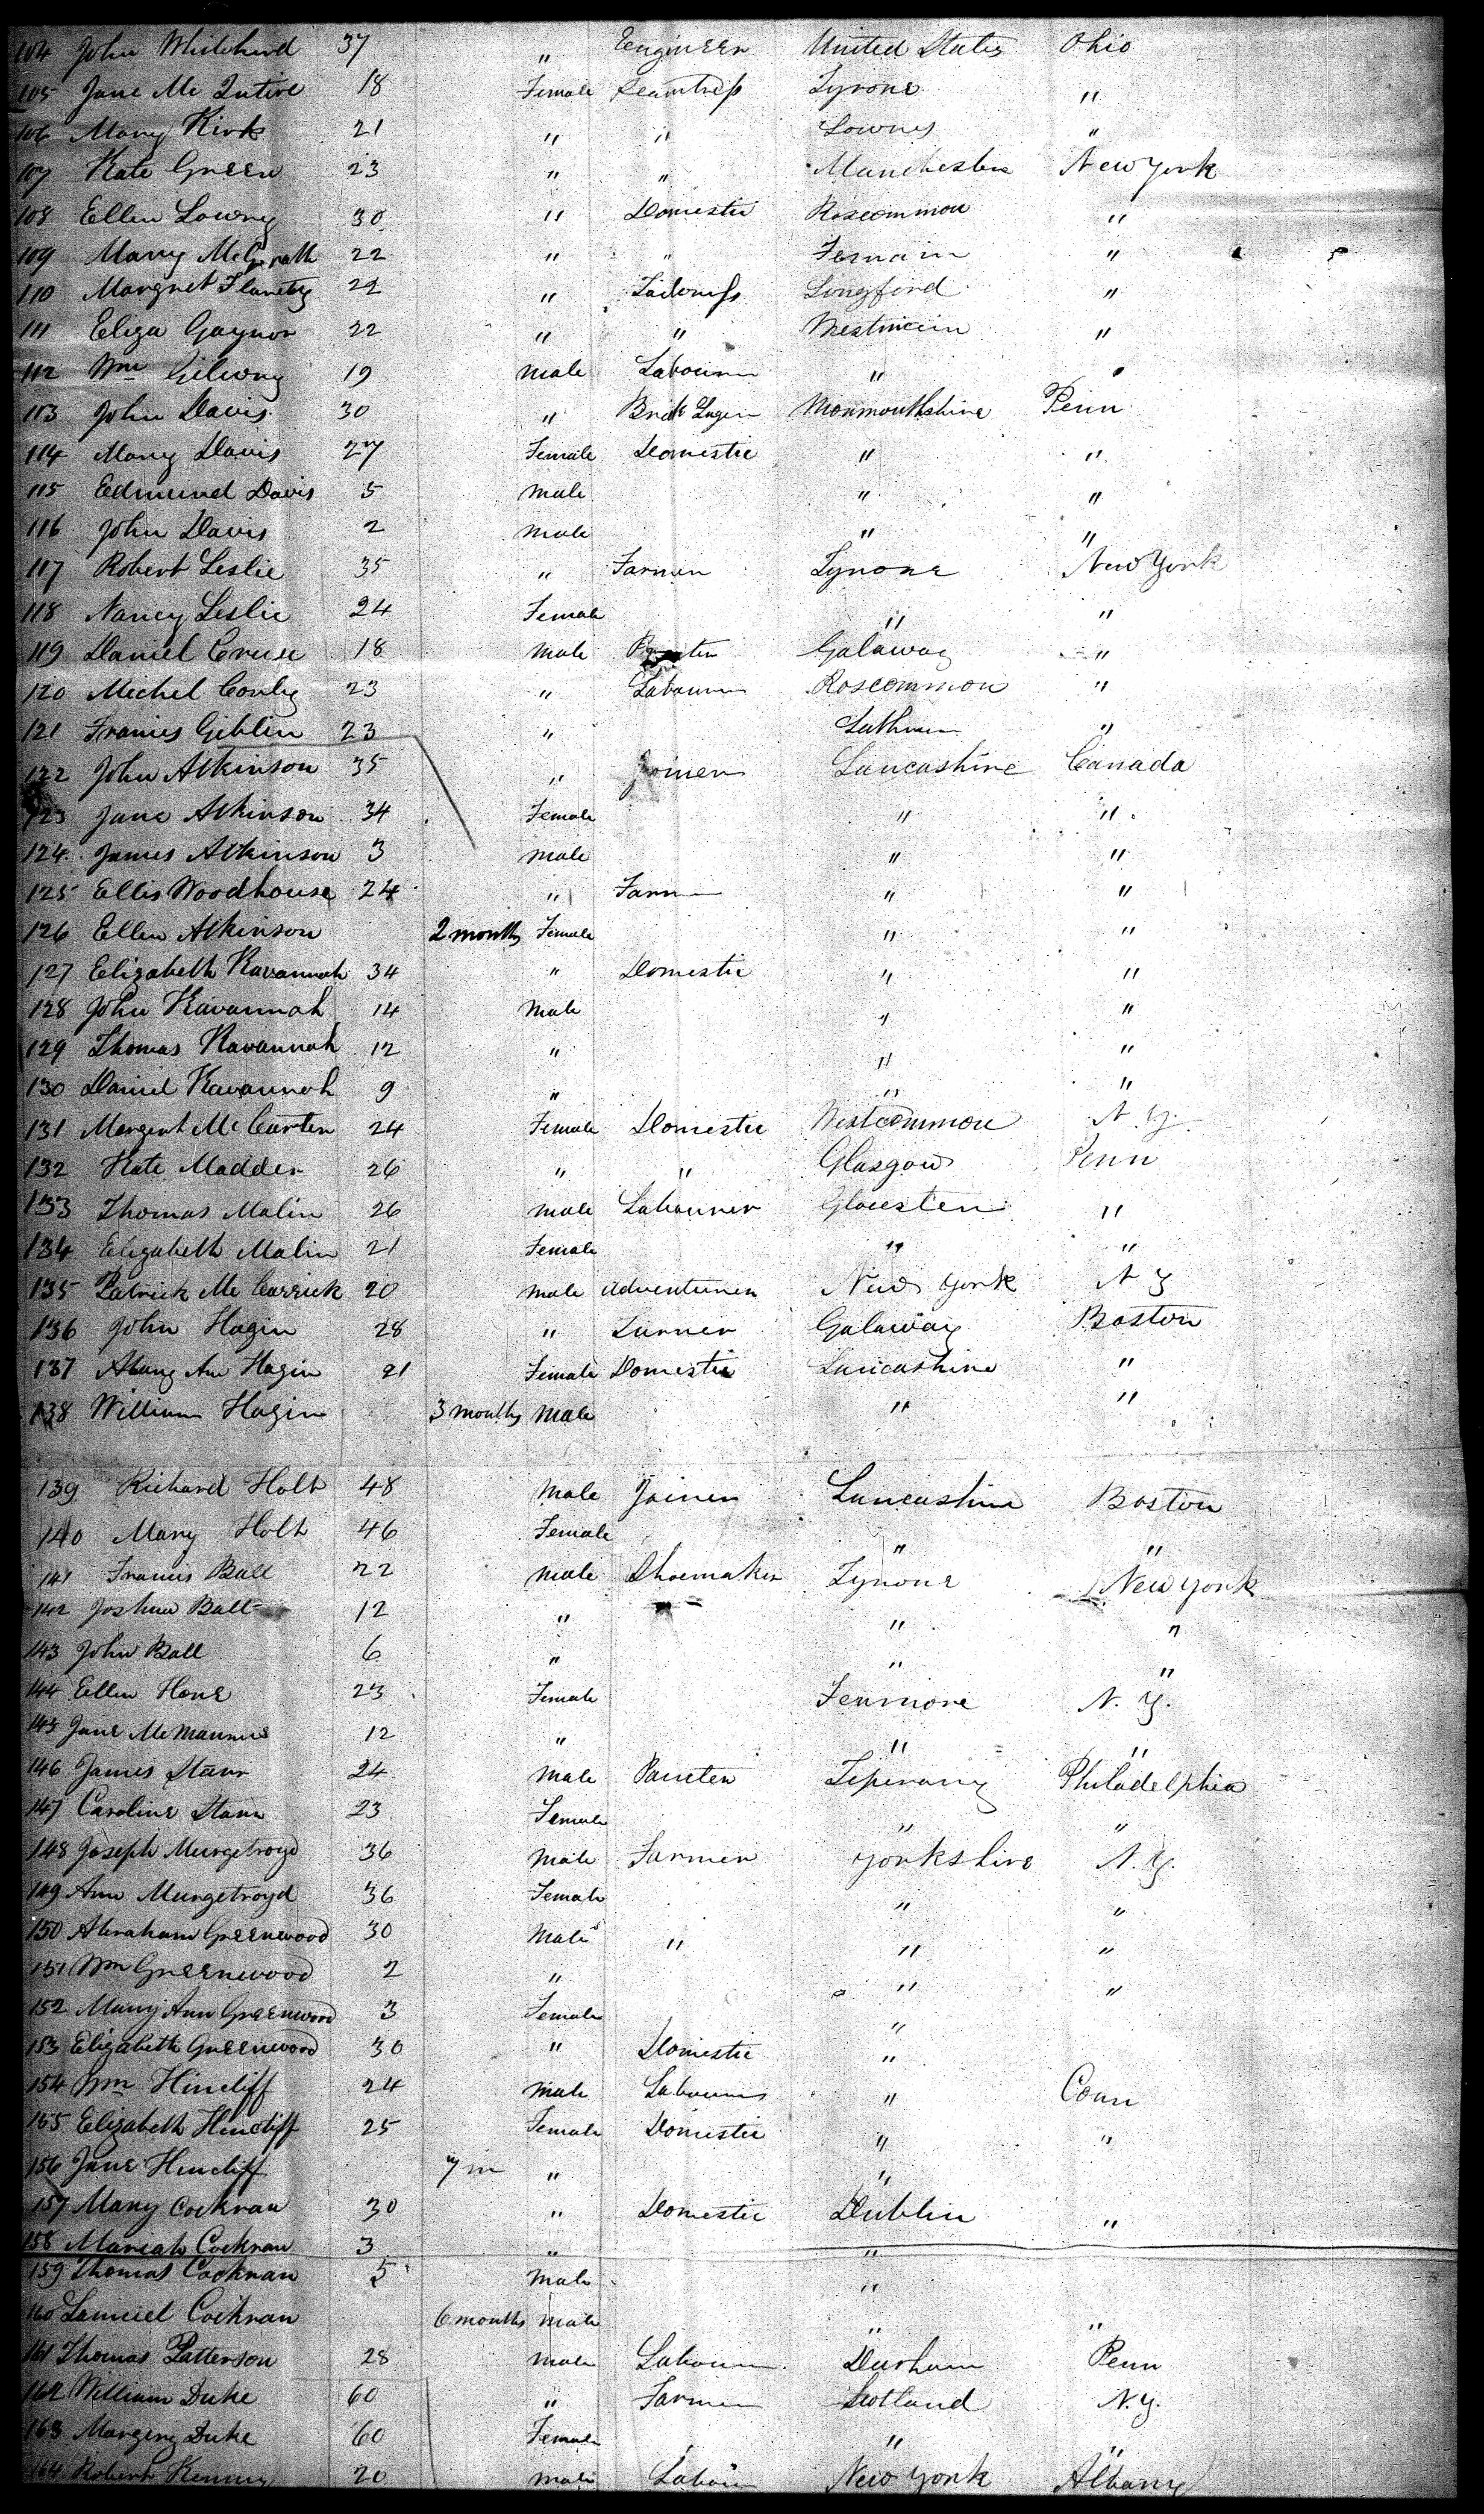 104 John Whitehead 37 " Engineer United States Ohio
105 Jane Mc Intire 18 Female Seamtress Tyrone "
106 Mary Kirk 21 " " Lownes "
107 Kate Green 23 " " Manchester New York
108 Ellen Lowry 30 " Domestic Roscommon "
109 Mary McGrath 22 " " "
110 Margret Flanety 22 " Tailoress Longford "
111 Eliza Gaynor 22 " " Westmein "
112 Wm Gilwny 19 male Labourer " "
113 John Davis 30 " Brick Layer Monmouthshire Penn
114 Mary Davis 27 Female Domestic " "
115 Edmund Davis 5 male " "
116 John Davis 2 male " "
117 Robert Leslie 35 " Farmer Tyrone New York
118 Nancy Leslie 24 Female " "
119 Daniel Cruse 18 male Galaway "
120 Michel Conly 23 " Labourer Roscommon "
121 Francis Giblin 23 " "
122 John Atkinson 35 " Joiner Lancashire Canada
123 Jane Atkinson 34 Female " "
124 James Atkinson 3 male " "
125 Ellis Woodhouse 24 " Farmer " "
126 Ellen Atkinson 2 months Female " "
127 Elizabeth Kavannah 34 " Domestic " "
128 John Kavannah 14 male " "
129 Thomas Kavannah 12 " " "
130 Daniel Kavannah 9 " " "
131 Mergent Mc Carten 24 Female Domestic Westcommon N.Y.
132 Kate Madden 26 " " Glasgow Penn
133 Thomas Malin 26 male Labourer Glocester "
134 Elizabeth Malin 21 Female " "
135 Patrick Mc Carrick 20 male adventurer New York N Y
136 John Hagin 28 " Turner Galaway Boston
137 Mary Ann Hagin 21 Female Domestic Lancashire "
138 William Hagin 3 months male " "
139 Richard Holt 48 male Joiner Lancashire Boston
140 Mary Holt 46 Female " "
141 Francis Ball 22 male Shoemaker Tyrone New York
142 Joshua Ball 12 " " "
143 John Ball 6 " " "
144 Ellen Hone 23 Female Fermore N.Y.
145 Jane McManus 12 " " "
146 James Starr 24 male Painter Tiperary Philadelphia
147 Caroline Starr 23 Female " "
148 Joseph Murgetroyd 36 male Farmer Yorkshire N.Y.
149 Ann Murgetroyd 36 Female " "
150 Abraham Greenwood 30 Male " " "
151 Wm Greenwood 2 " " "
152 Mary Ann Greenwood 3 Female "
153 Elizabeth Greenwood 30 " Domestic "
154 Wm Hincliff 24 male Labourer " Conn
155 Elizabeth Hincliff 25 Female Domestic " "
156 Jane Hincliff 7 m " "
157 Mary Cockran 30 " Domestic Dublin "
158 Mariah Cockran 3 " "
159 Thomas Cockran 5 male "
160 Samuel Cockran 6 months male " "
161 Thomas Patterson 28 male Labourer Durham Penn
162 William Duke 60 " Farmer Scotland N.Y.
163 Margery Duke 60 Female " "
164 Robert Kenny 20 male Labour New York Albany